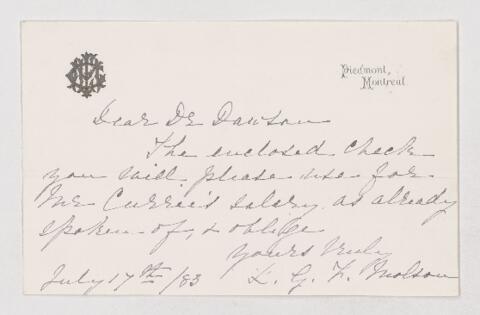 Piedmont,
Montreal
Dear Dr Dawson
The enclosed check
you will please use for
Mr Currie's salary as already
spoken of, & oblige
yours truly
July 17th /83 L. G. F. Molson